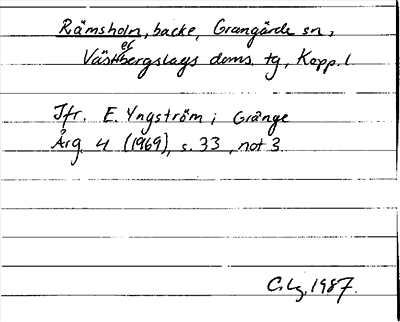 Rämsholn, backe, Grangärde sn,
Västerbergslags doms. tg, Kopp. l.
Jfr. E. Yngström i Gränge
Årg. 4 (1969), s. 33, not 3.
C. Lg, 1987.